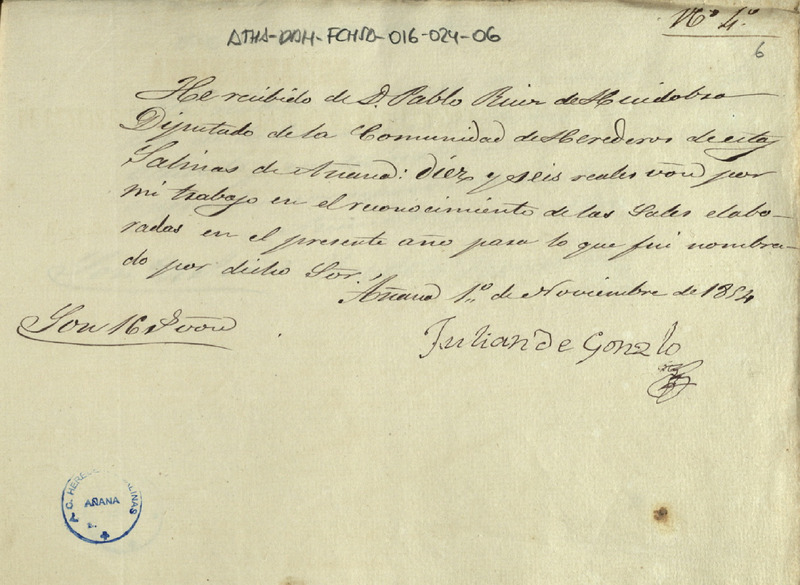 Nº 4º
ATHA-DAH-FCHSA-016-024-06
6
He recibido de D. Pablo Ruiz de Huidobro
Diputado de la Comunidad de Herederos de estas
Salinas de Añana: diez y seis reales vón por
mi trabajo en el reconocimiento de las Sales elabo-
radas en el presente año para lo que fui nombra-
do por dicho Sor.
Añana 1º de Noviembre de 1854
Son 16 rs vón
Julian de Gonzlo
AÑANA